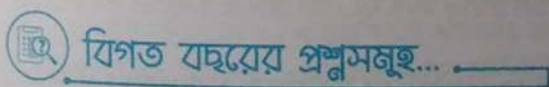 বিগত বছরের প্রশ্নসমূহ...